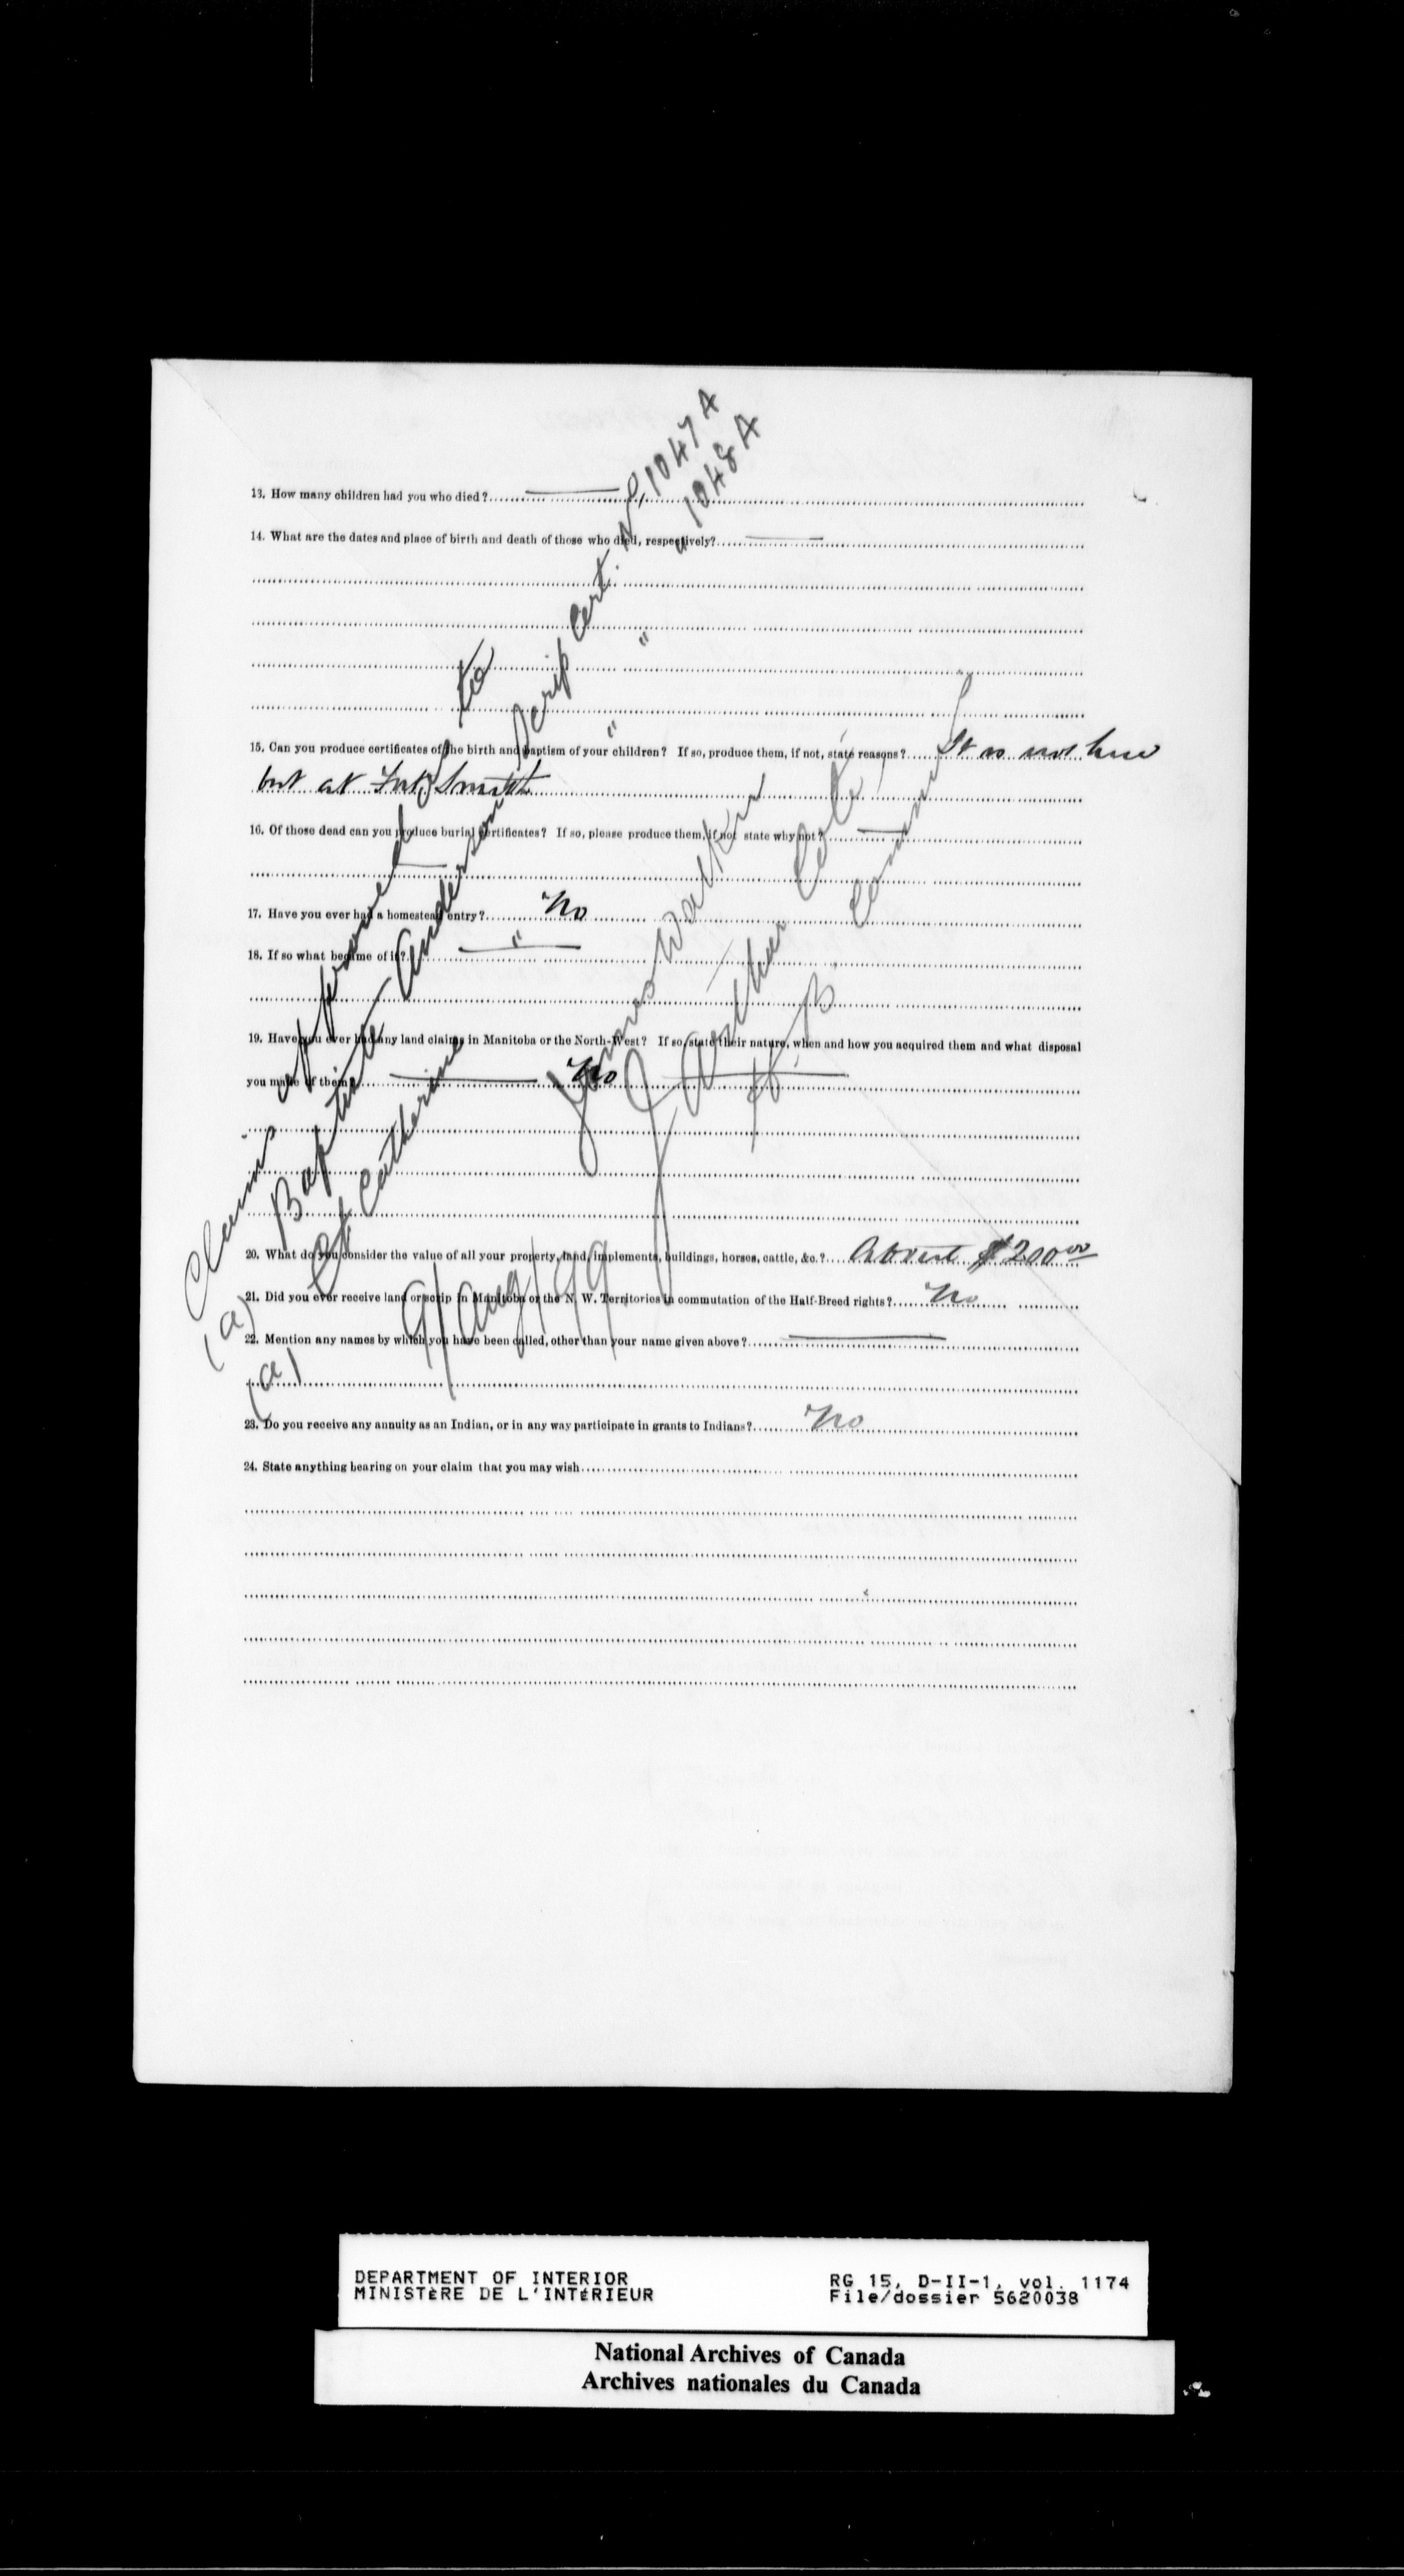 13. How many children had you who died?
14. What are the dates and place of birth and death of those who died, respectively?
15. Can you produce certificates of the birth and baptism of your children? If so, produce them, if not, state reasons? It is not here
but at Fort Smith
16. Of those dead can you produce burial certificates? If so, please produce them, if not state why not?
17. Have you ever had a homestead entry? No
18. If so what became of it? "
19. Have you ever had any land claims in Manitoba or the North-West? If so, state their nature, when and how you acquired them and what disposal
you made of them? No
20. What do you consider the value of all your property, land, implements, buildings, horses, cattle, &c.? About $200 00
21. Did you ever receive land or scrip in Manitoba or the N. W. Territories in commutation of the Half-Breed rights? No
22. Mention any names by which you have been called, other than your name given above?
23. Do you receive any annuity as an Indian, or in any way participate in grants to Indians? No
24. State anything bearing on your claim that you may wish
Claims approved as to
(a) Baptiste Anderson Scrip Cert. No 1047 A
(a) Catherine " " " 1048 A
9/Aug/99.
James Walker
J. Arthur Coté
H. B. Comrs
DEPARTMENT OF INTERIOR
MINISTÈRE DE L'INTÉRIEUR
RG 15, D-II-1, vol. 1174
File/dossier 5620038
National Archives of Canada
Archives nationales du Canada